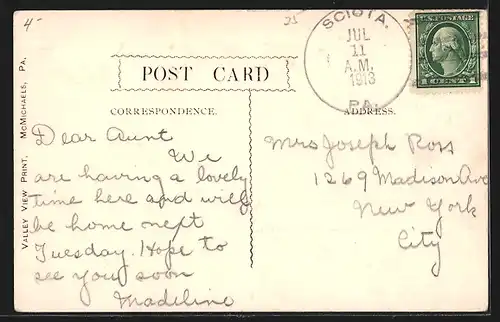 4-
25
SCIOTA.
JUL
11
A.M.
1913
PA.
U.S. POSTAGE
1 CENT 1
POST CARD
CORRESPONDENCE.
ADDRESS.
VALLEY VIEW PRINT, McMICHAELS, PA.
Dear Aunt
We
are having a lovely
time here and will
be home next
Tuesday. Hope to
see you soon
Madeline
Mrs Joseph Ross
1269 Madison Ave
New York
City